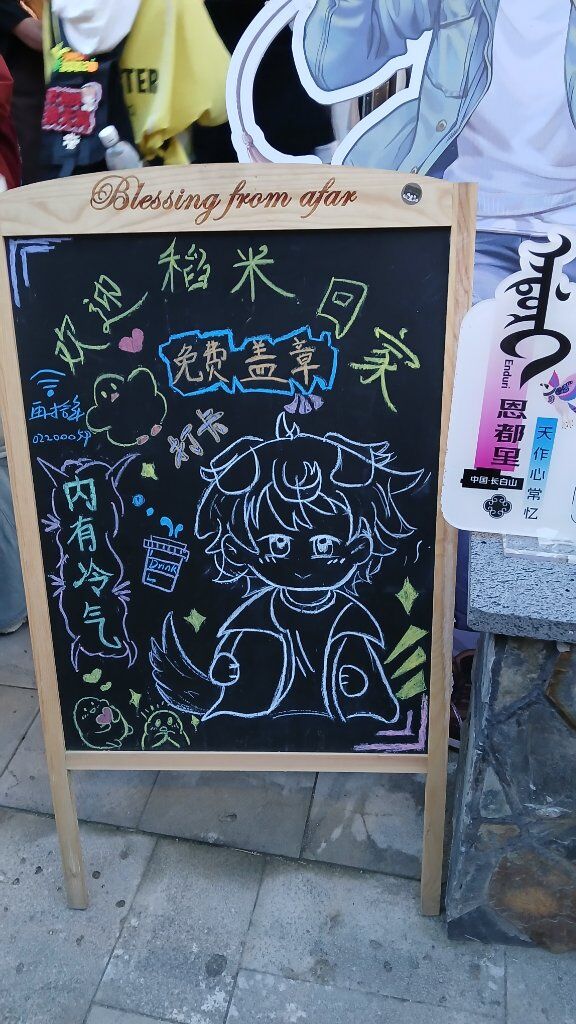 TER
Blessing from afar
欢迎稻米回家
免费盖章
打卡
02200059
内有冷气
Drink
Enduri
恩都里
天作心常忆
中国·长白山